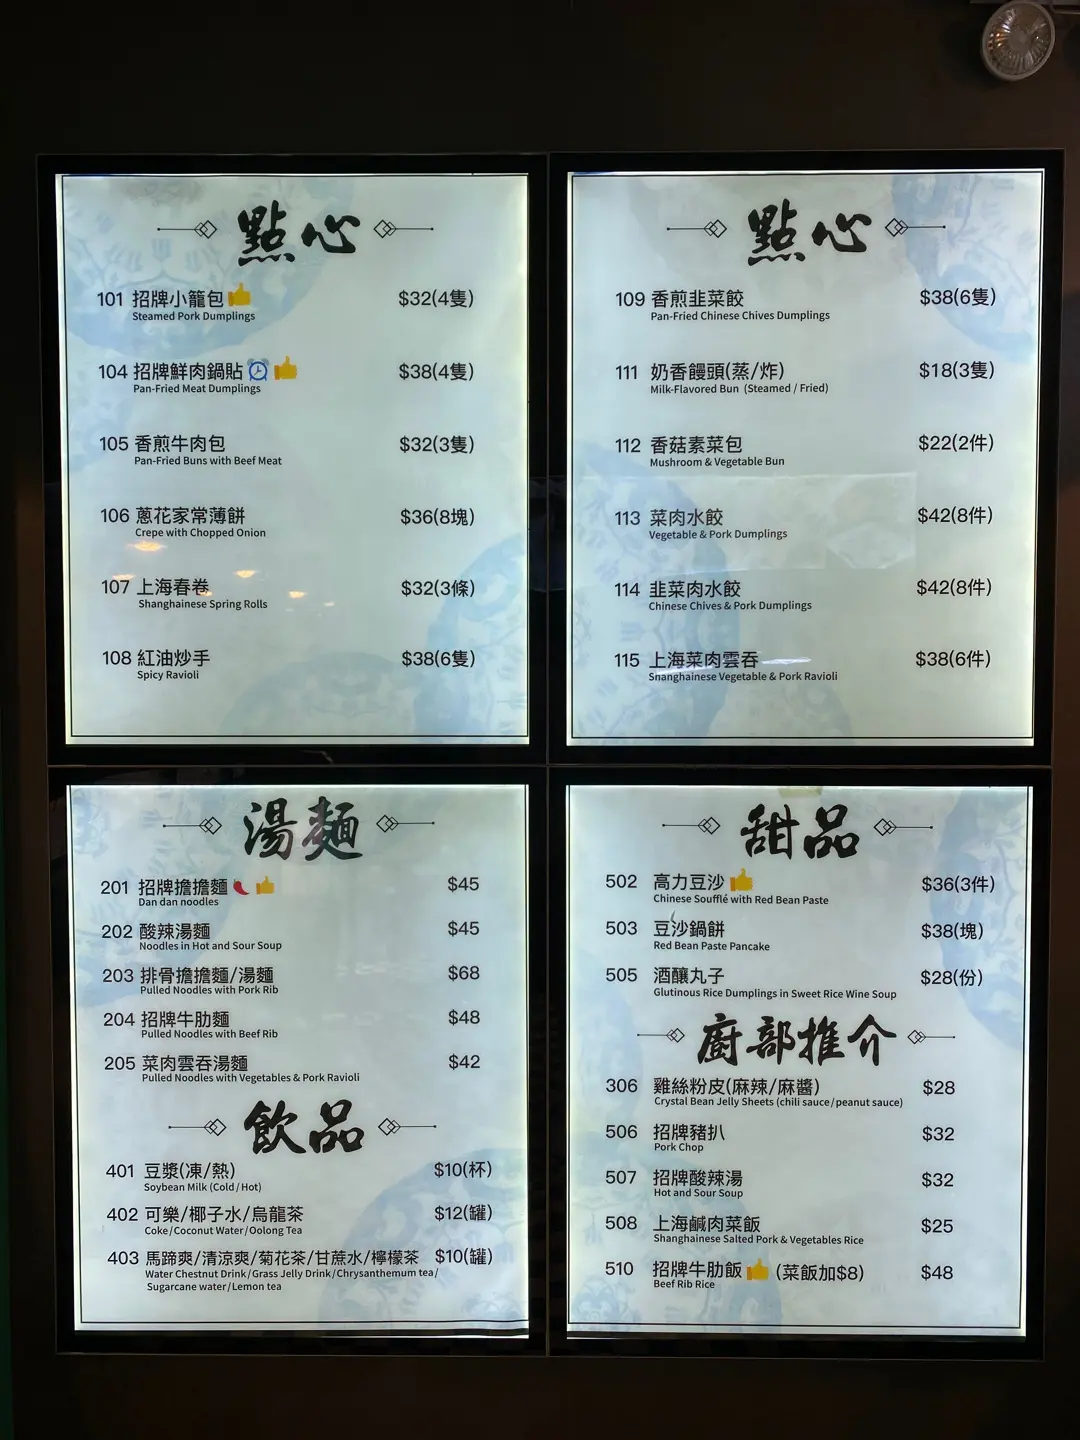 點心
101 招牌小籠包 $32(4隻)
Steamed Pork Dumplings
104 招牌鮮肉鍋貼 $38(4隻)
Pan-Fried Meat Dumplings
105 香煎牛肉包 $32(3隻)
Pan-Fried Buns with Beef Meat
106 蔥花家常薄餅 $36(8塊)
Crepe with Chopped Onion
107 上海春卷 $32(3條)
Shanghainese Spring Rolls
108 紅油炒手 $38(6隻)
Spicy Ravioli
點心
109 香煎韭菜餃 $38(6隻)
Pan-Fried Chinese Chives Dumplings
111 奶香饅頭(蒸/炸) $18(3隻)
Milk-Flavored Bun (Steamed / Fried)
112 香菇素菜包 $22(2件)
Mushroom & Vegetable Bun
113 菜肉水餃 $42(8件)
Vegetable & Pork Dumplings
114 韭菜肉水餃 $42(8件)
Chinese Chives & Pork Dumplings
115 上海菜肉雲吞 $38(6件)
Snanghainese Vegetable & Pork Ravioli
湯麵
201 招牌擔擔麵 $45
Dan dan noodles
202 酸辣湯麵 $45
Noodles in Hot and Sour Soup
203 排骨擔擔麵/湯麵 $68
Pulled Noodles with Pork Rib
204 招牌牛肋麵 $48
Pulled Noodles with Beef Rib
205 菜肉雲吞湯麵 $42
Pulled Noodles with Vegetables & Pork Ravioli
飲品
401 豆漿(凍/熱) $10(杯)
Soybean Milk (Cold / Hot)
402 可樂/椰子水/烏龍茶 $12(罐)
Coke/Coconut Water/Oolong Tea
403 馬蹄爽/清涼爽/菊花茶/甘蔗水/檸檬茶 $10(罐)
Water Chestnut Drink/Grass Jelly Drink/Chrysanthemum tea/
Sugarcane water/Lemon tea
甜品
502 高力豆沙 $36(3件)
Chinese Soufflé with Red Bean Paste
503 豆沙鍋餅 $38(塊)
Red Bean Paste Pancake
505 酒釀丸子 $28(份)
Glutinous Rice Dumplings in Sweet Rice Wine Soup
廚部推介
306 雞絲粉皮(麻辣/麻醬) $28
Crystal Bean Jelly Sheets (chili sauce/peanut sauce)
506 招牌豬扒 $32
Pork Chop
507 招牌酸辣湯 $32
Hot and Sour Soup
508 上海鹹肉菜飯 $25
Shanghainese Salted Pork & Vegetables Rice
510 招牌牛肋飯 (菜飯加$8) $48
Beef Rib Rice